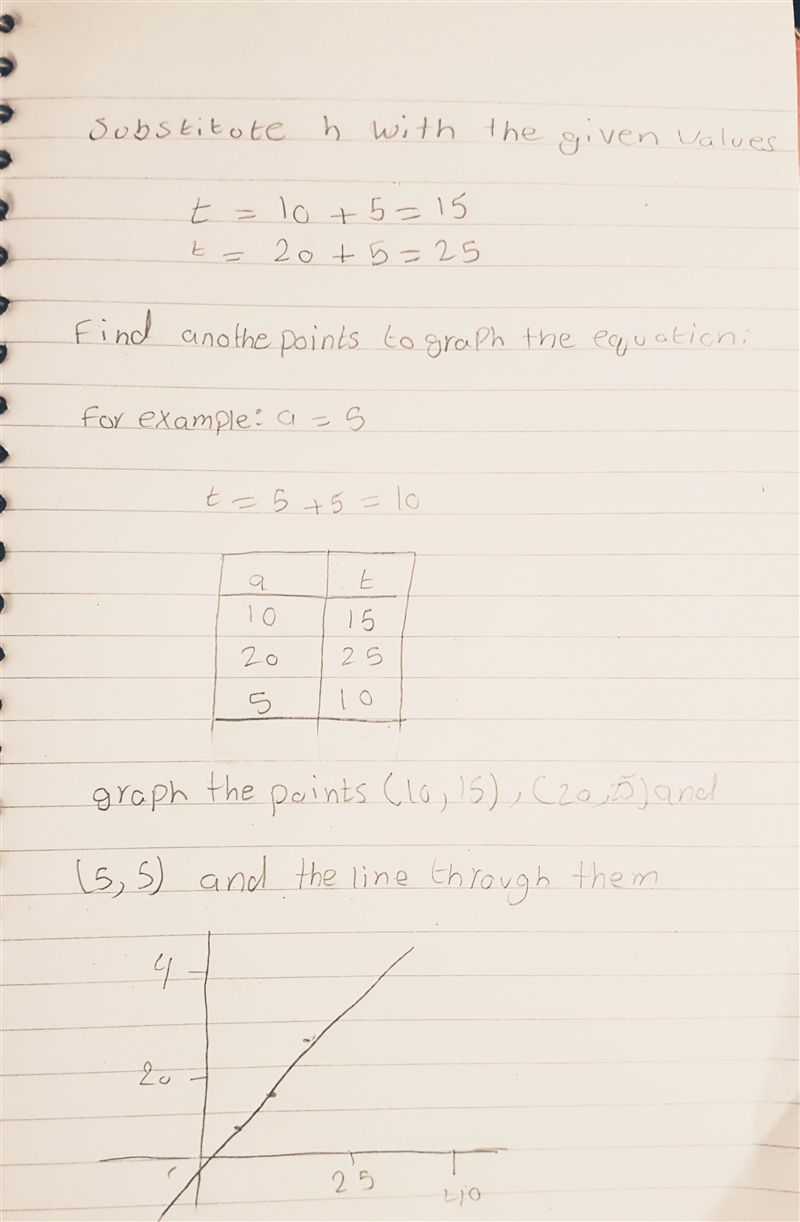 Substitote h with the given values
t = 10 + 5 = 15
t = 20 + 5 = 25
Find anothe points to graph the equation:
for example: a = 5
t = 5 + 5 = 10
a t
10 15
20 25
5 10
graph the points (10, 15), (20, and
(5, 5) and the line through them
4
20
25
40